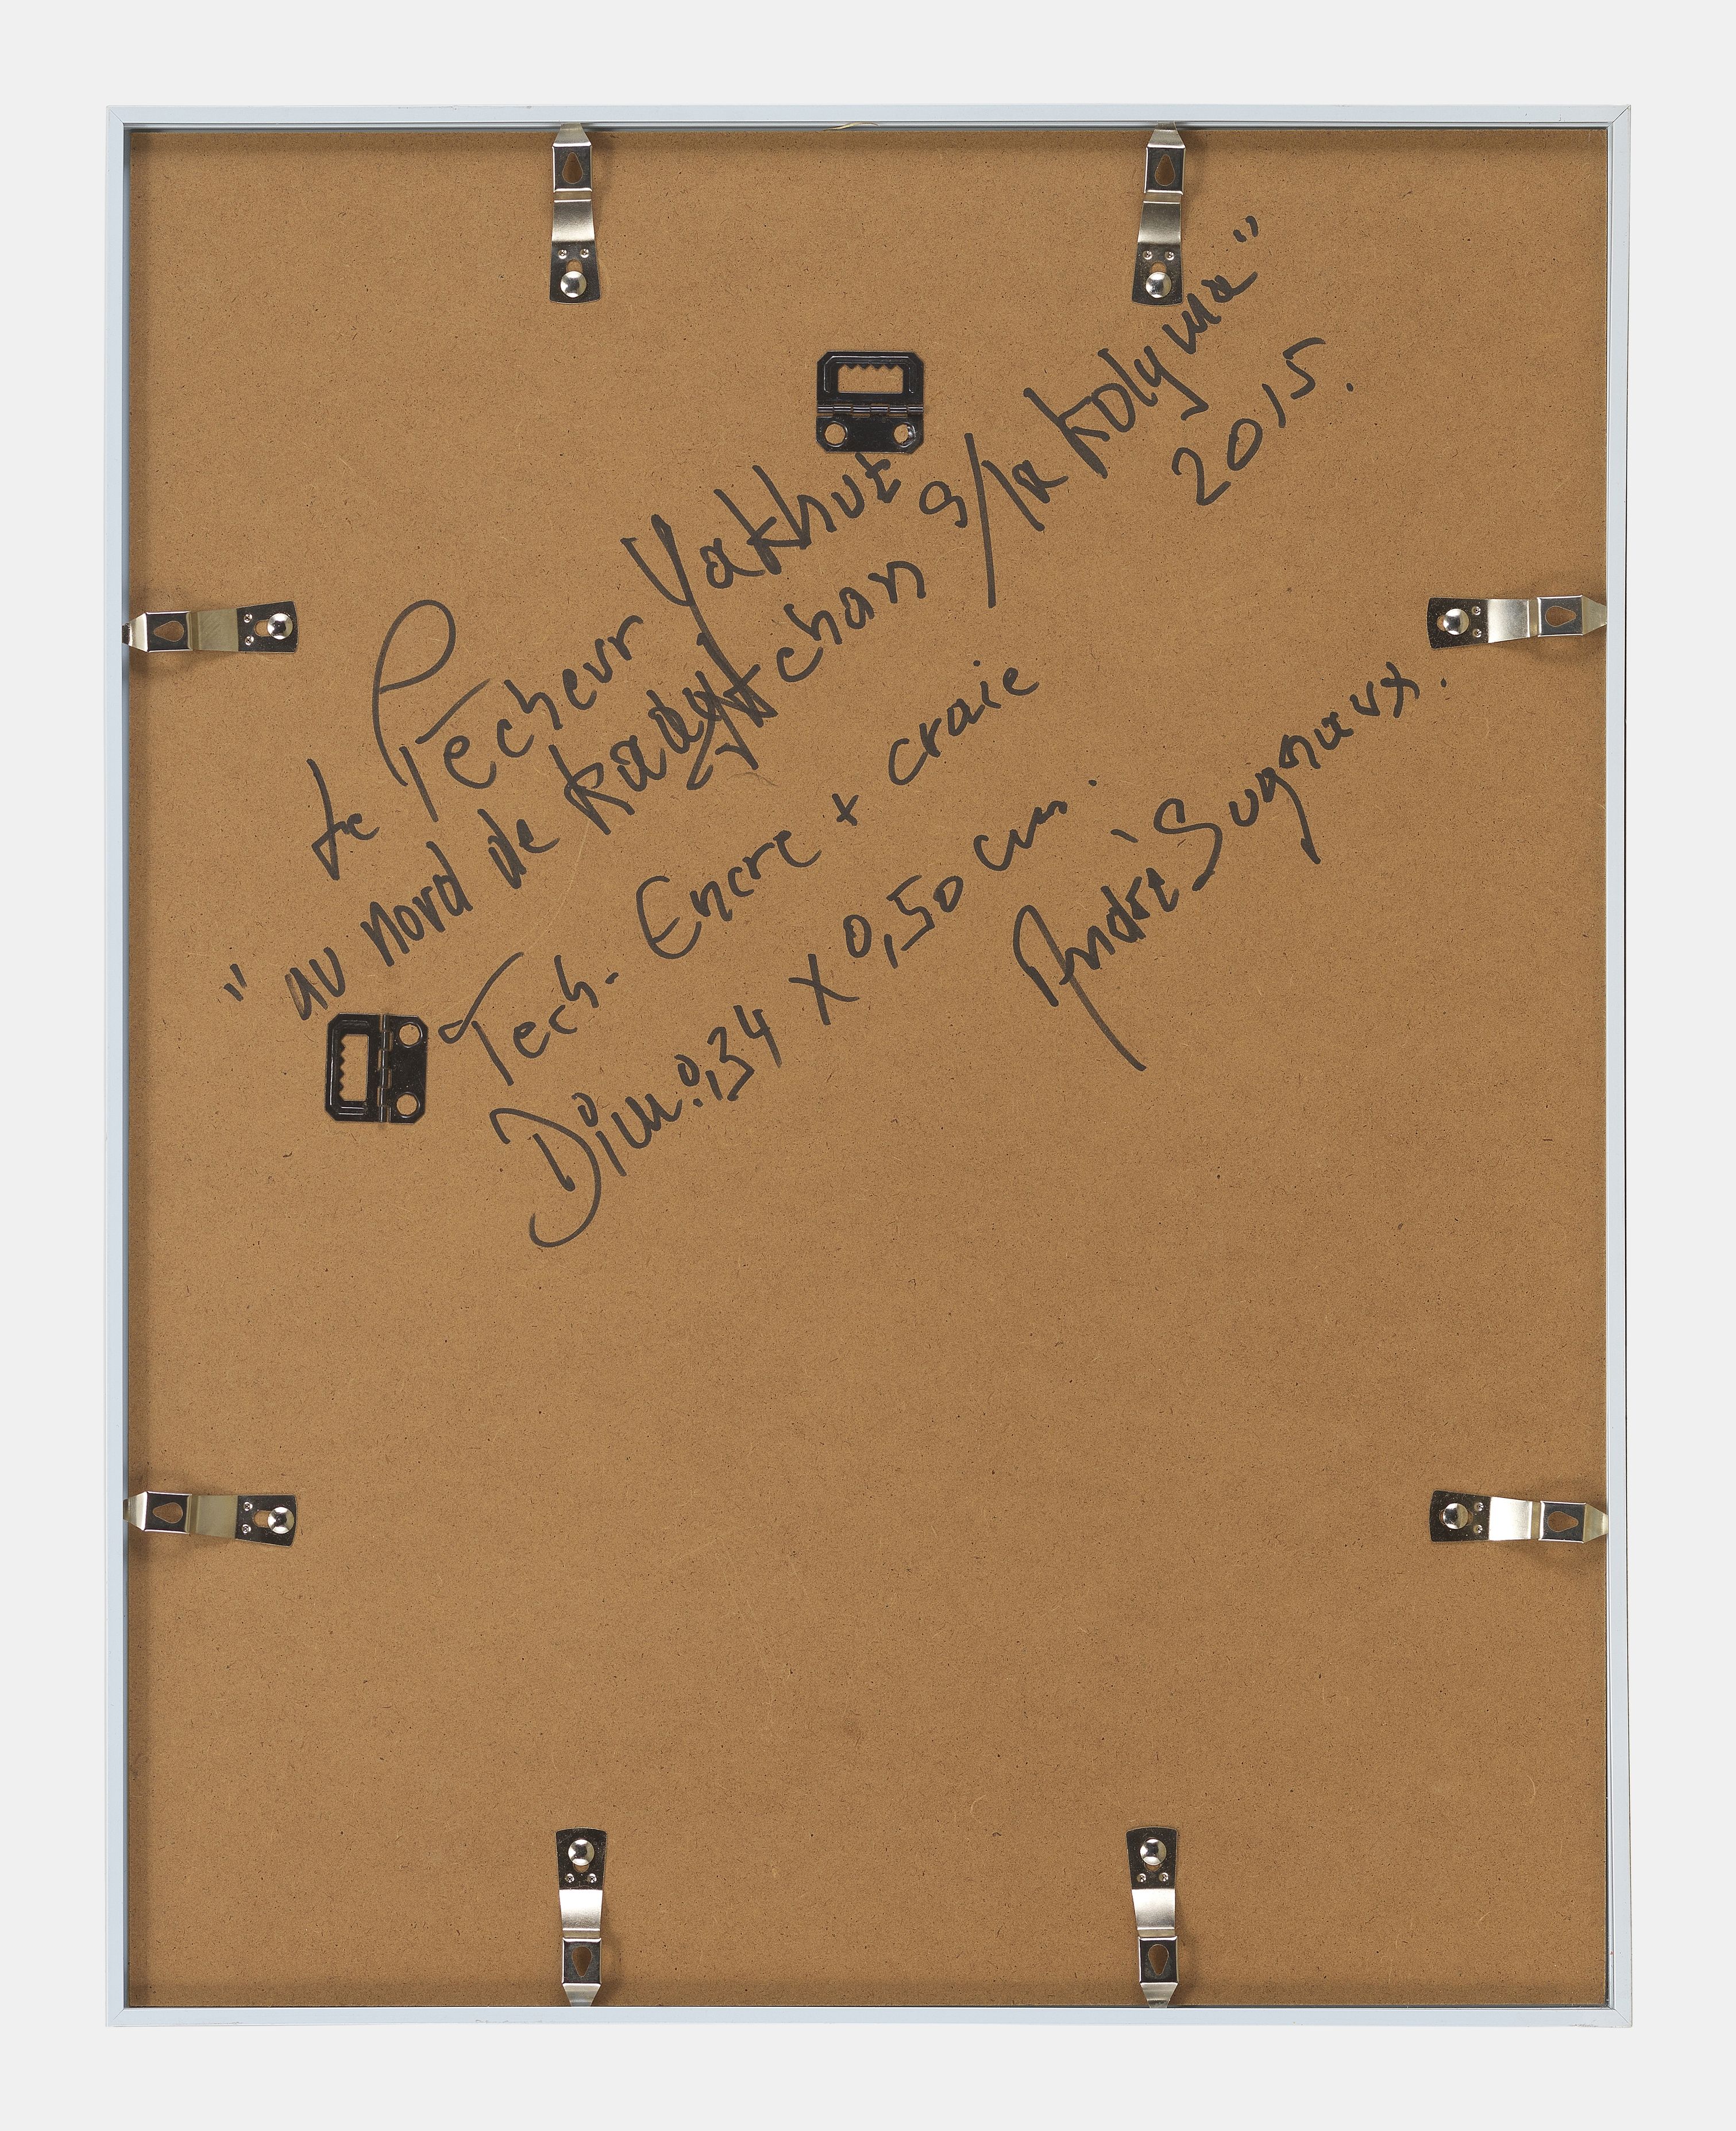 Le Pecheur Yakhut
"au nord de chan s/la Kolyma"
2015.
Tech. Encre + craie
Dim: 0,34 x 0,50 cm.
André Sugnaux.